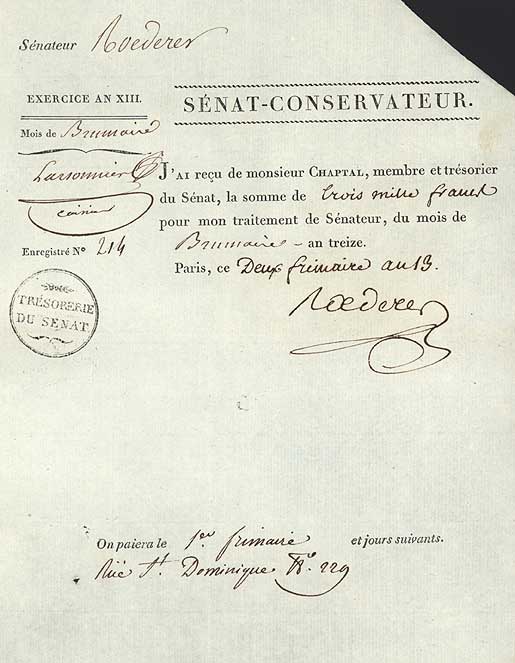 Sénateur Roederer
EXERCICE AN XIII.
SÉNAT-CONSERVATEUR.
Mois de Brumaire
J'AI reçu de monsieur CHAPTAL, membre et trésorier
du Sénat, la somme de trois mille francs
pour mon traitement de Sénateur, du mois de
Brumaire - an treize.
Paris, ce Deux frimaire an 13.
Roederer
caissier
Enregistré N° 214
TRÉSORERIE
DU SÉNAT
On paiera le 1er. frimaire et jours suivants.
Rüe St. Dominique N°. 229